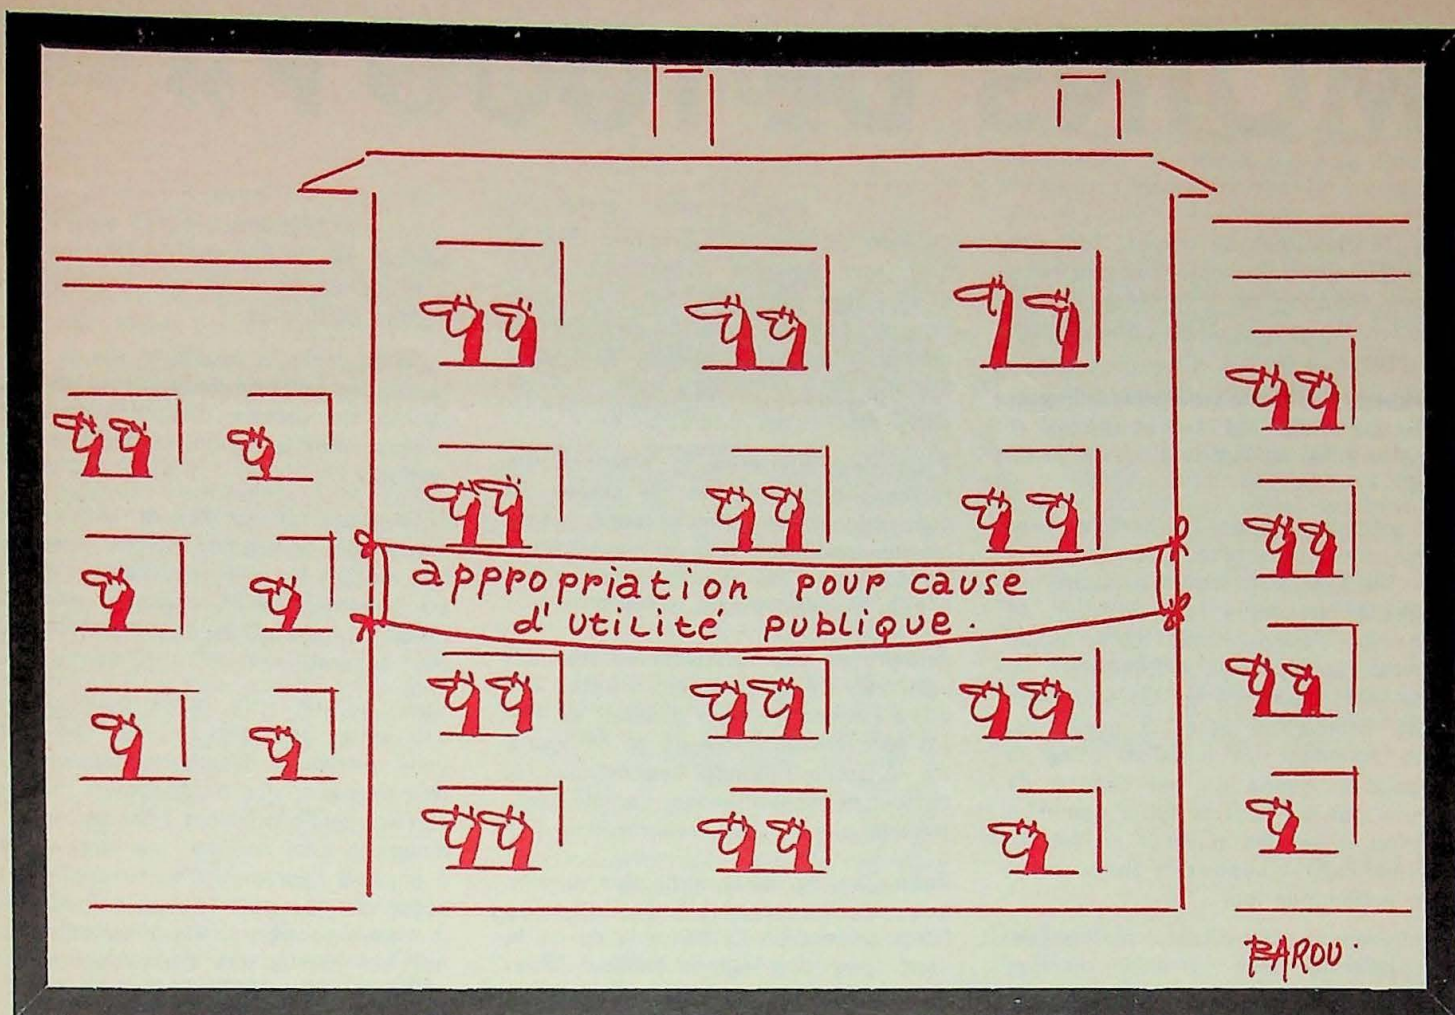 appropriation pour cause
d'utilité publique.
BAROU.